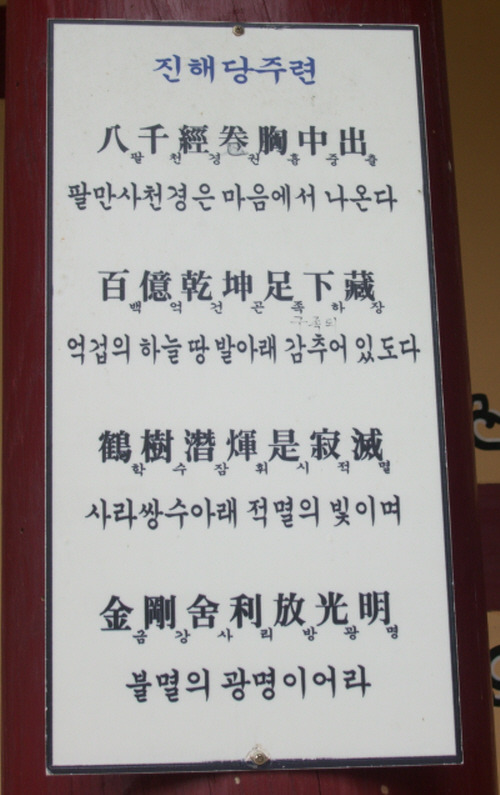 진해당주련
八千經卷胸中出
팔천경권흉중출
팔만사천경은 마음에서 나온다
百億乾坤足下藏
백억건곤족하장
억겁의 하늘 땅 발아래 감추어 있도다
鶴樹潛煇是寂滅
학수잠휘시적멸
사라쌍수아래 적멸의 빛이며
金剛舍利放光明
금강사리방광명
불멸의 광명이어라